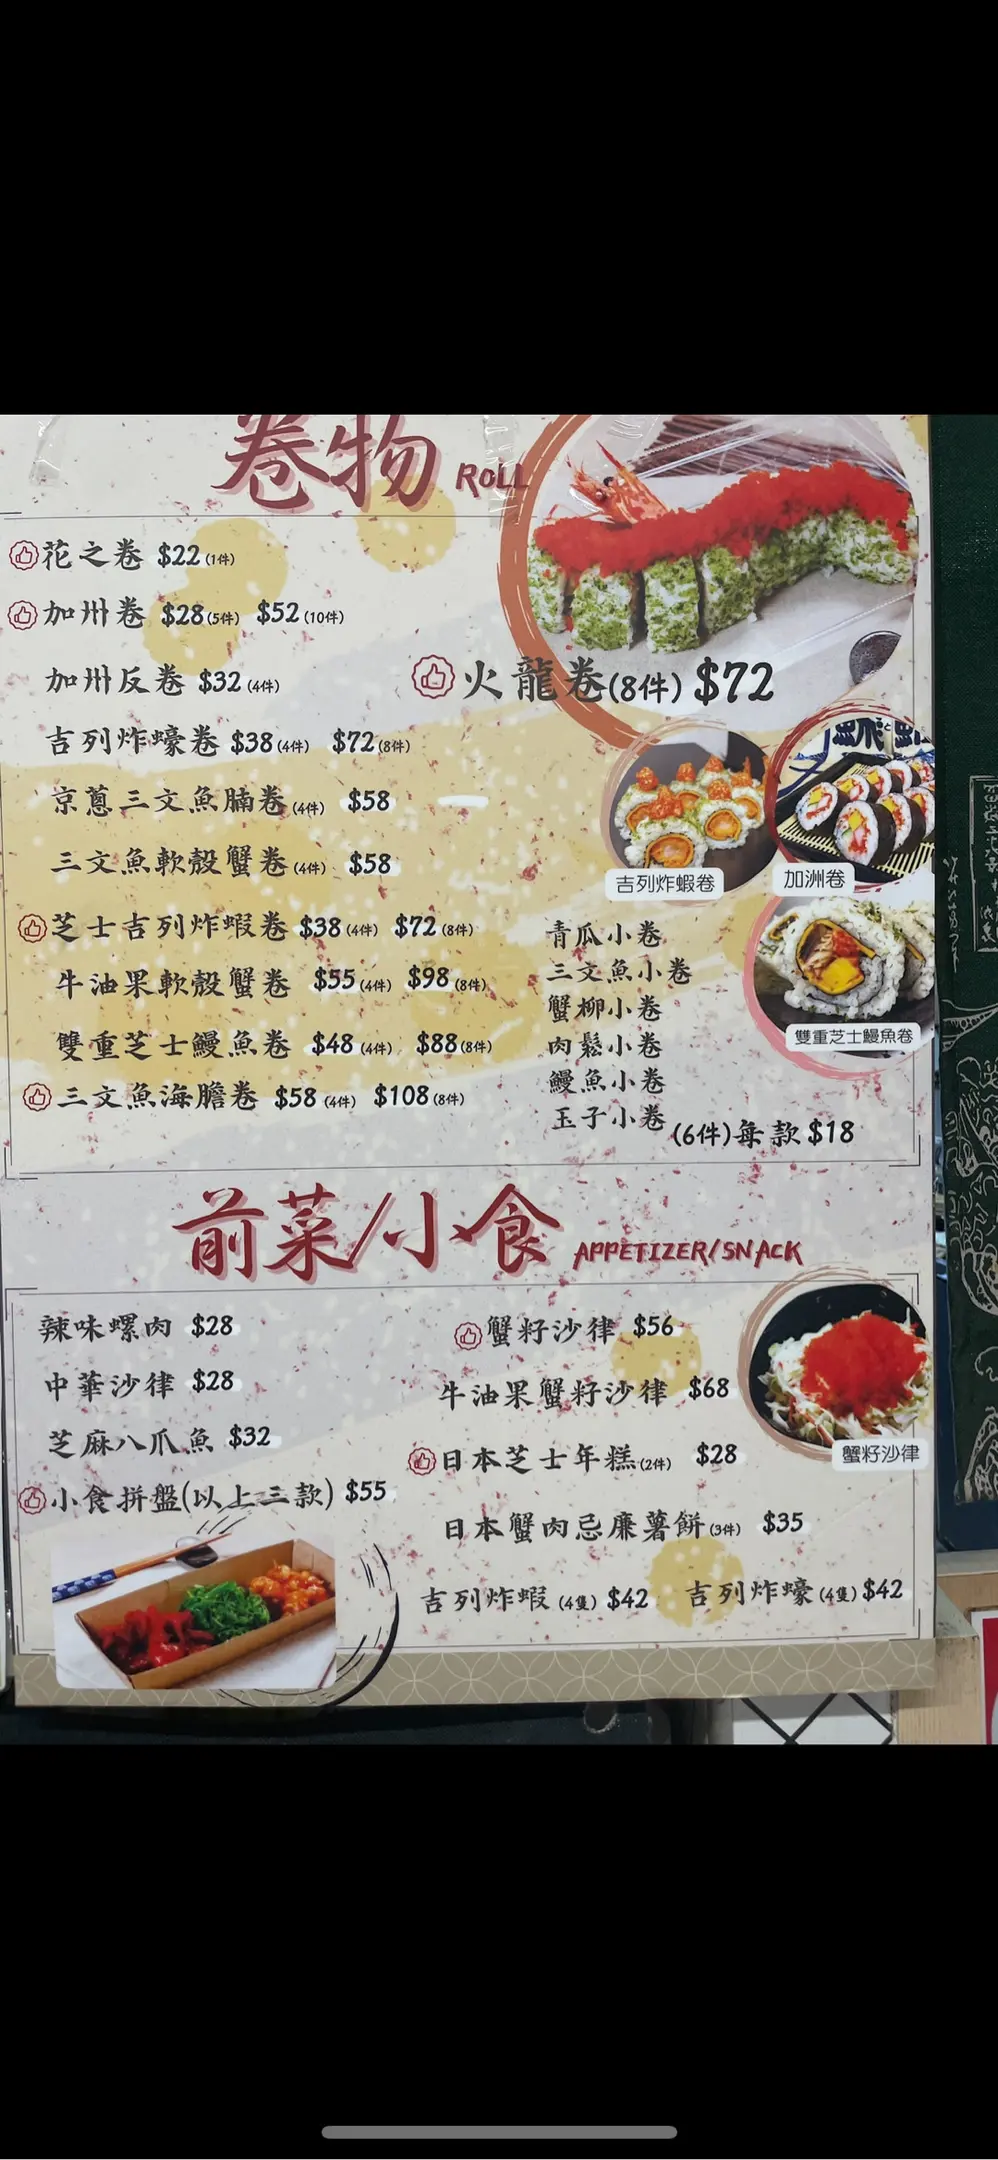 卷物 ROLL
花之卷 $22(1件)
加州卷 $28(5件) $52(10件)
加州反卷 $32(4件)
火龍卷(8件) $72
吉列炸蠔卷 $38(4件) $72(8件)
京蔥三文魚腩卷(4件) $58
三文魚軟殼蟹卷(4件) $58
芝士吉列炸蝦卷 $38(4件) $72(8件)
牛油果軟殼蟹卷 $55(4件) $98(8件)
雙重芝士鰻魚卷 $48(4件) $88(8件)
三文魚海膽卷 $58(4件) $108(8件)
吉列炸蝦卷
加洲卷
雙重芝士鰻魚卷
青瓜小卷
三文魚小卷
蟹柳小卷
肉鬆小卷
鰻魚小卷
玉子小卷
(6件)每款$18
前菜/小食 APPETIZER/SNACK
辣味螺肉 $28
中華沙律 $28
芝麻八爪魚 $32
小食拼盤(以上三款) $55
蟹籽沙律 $56
牛油果蟹籽沙律 $68
日本芝士年糕(2件) $28
日本蟹肉忌廉薯餅(3件) $35
吉列炸蝦(4隻) $42 吉列炸蠔(4隻) $42
蟹籽沙律